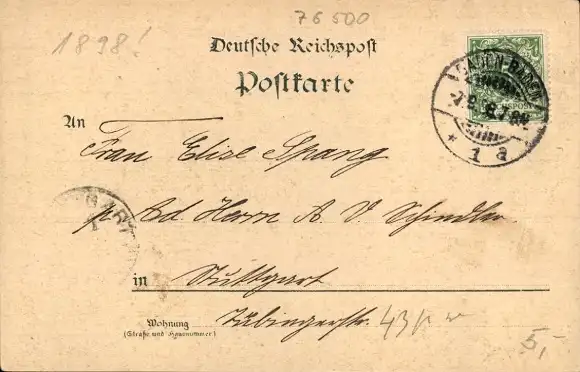 76500
1898!
Deutsche Reichspost
Postkarte
BADEN-BADEN
REICHSPOST
* 1 a
An
Frau Elise Spang
p. Ad. Herrn A. V. Schindler
in Stuttgart
Tübingerstr. 43
Wohnung
(Straße und Hausnummer)
5,-